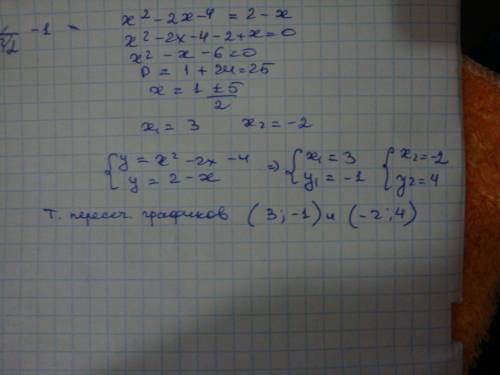 x² - 2x - 4 = 2 - x
-1 -
x² - 2x - 4 - 2 + x = 0
x² - x - 6 = 0
D = 1 + 24 = 25
x = 1 ± 5 / 2
x₁ = 3 x₂ = -2
{ y = x² - 2x - 4 => { x₁ = 3 { x₂ = -2
y = 2 - x y₁ = -1 y₂ = 4
Т. пересеч. графиков (3; -1) и (-2; 4)